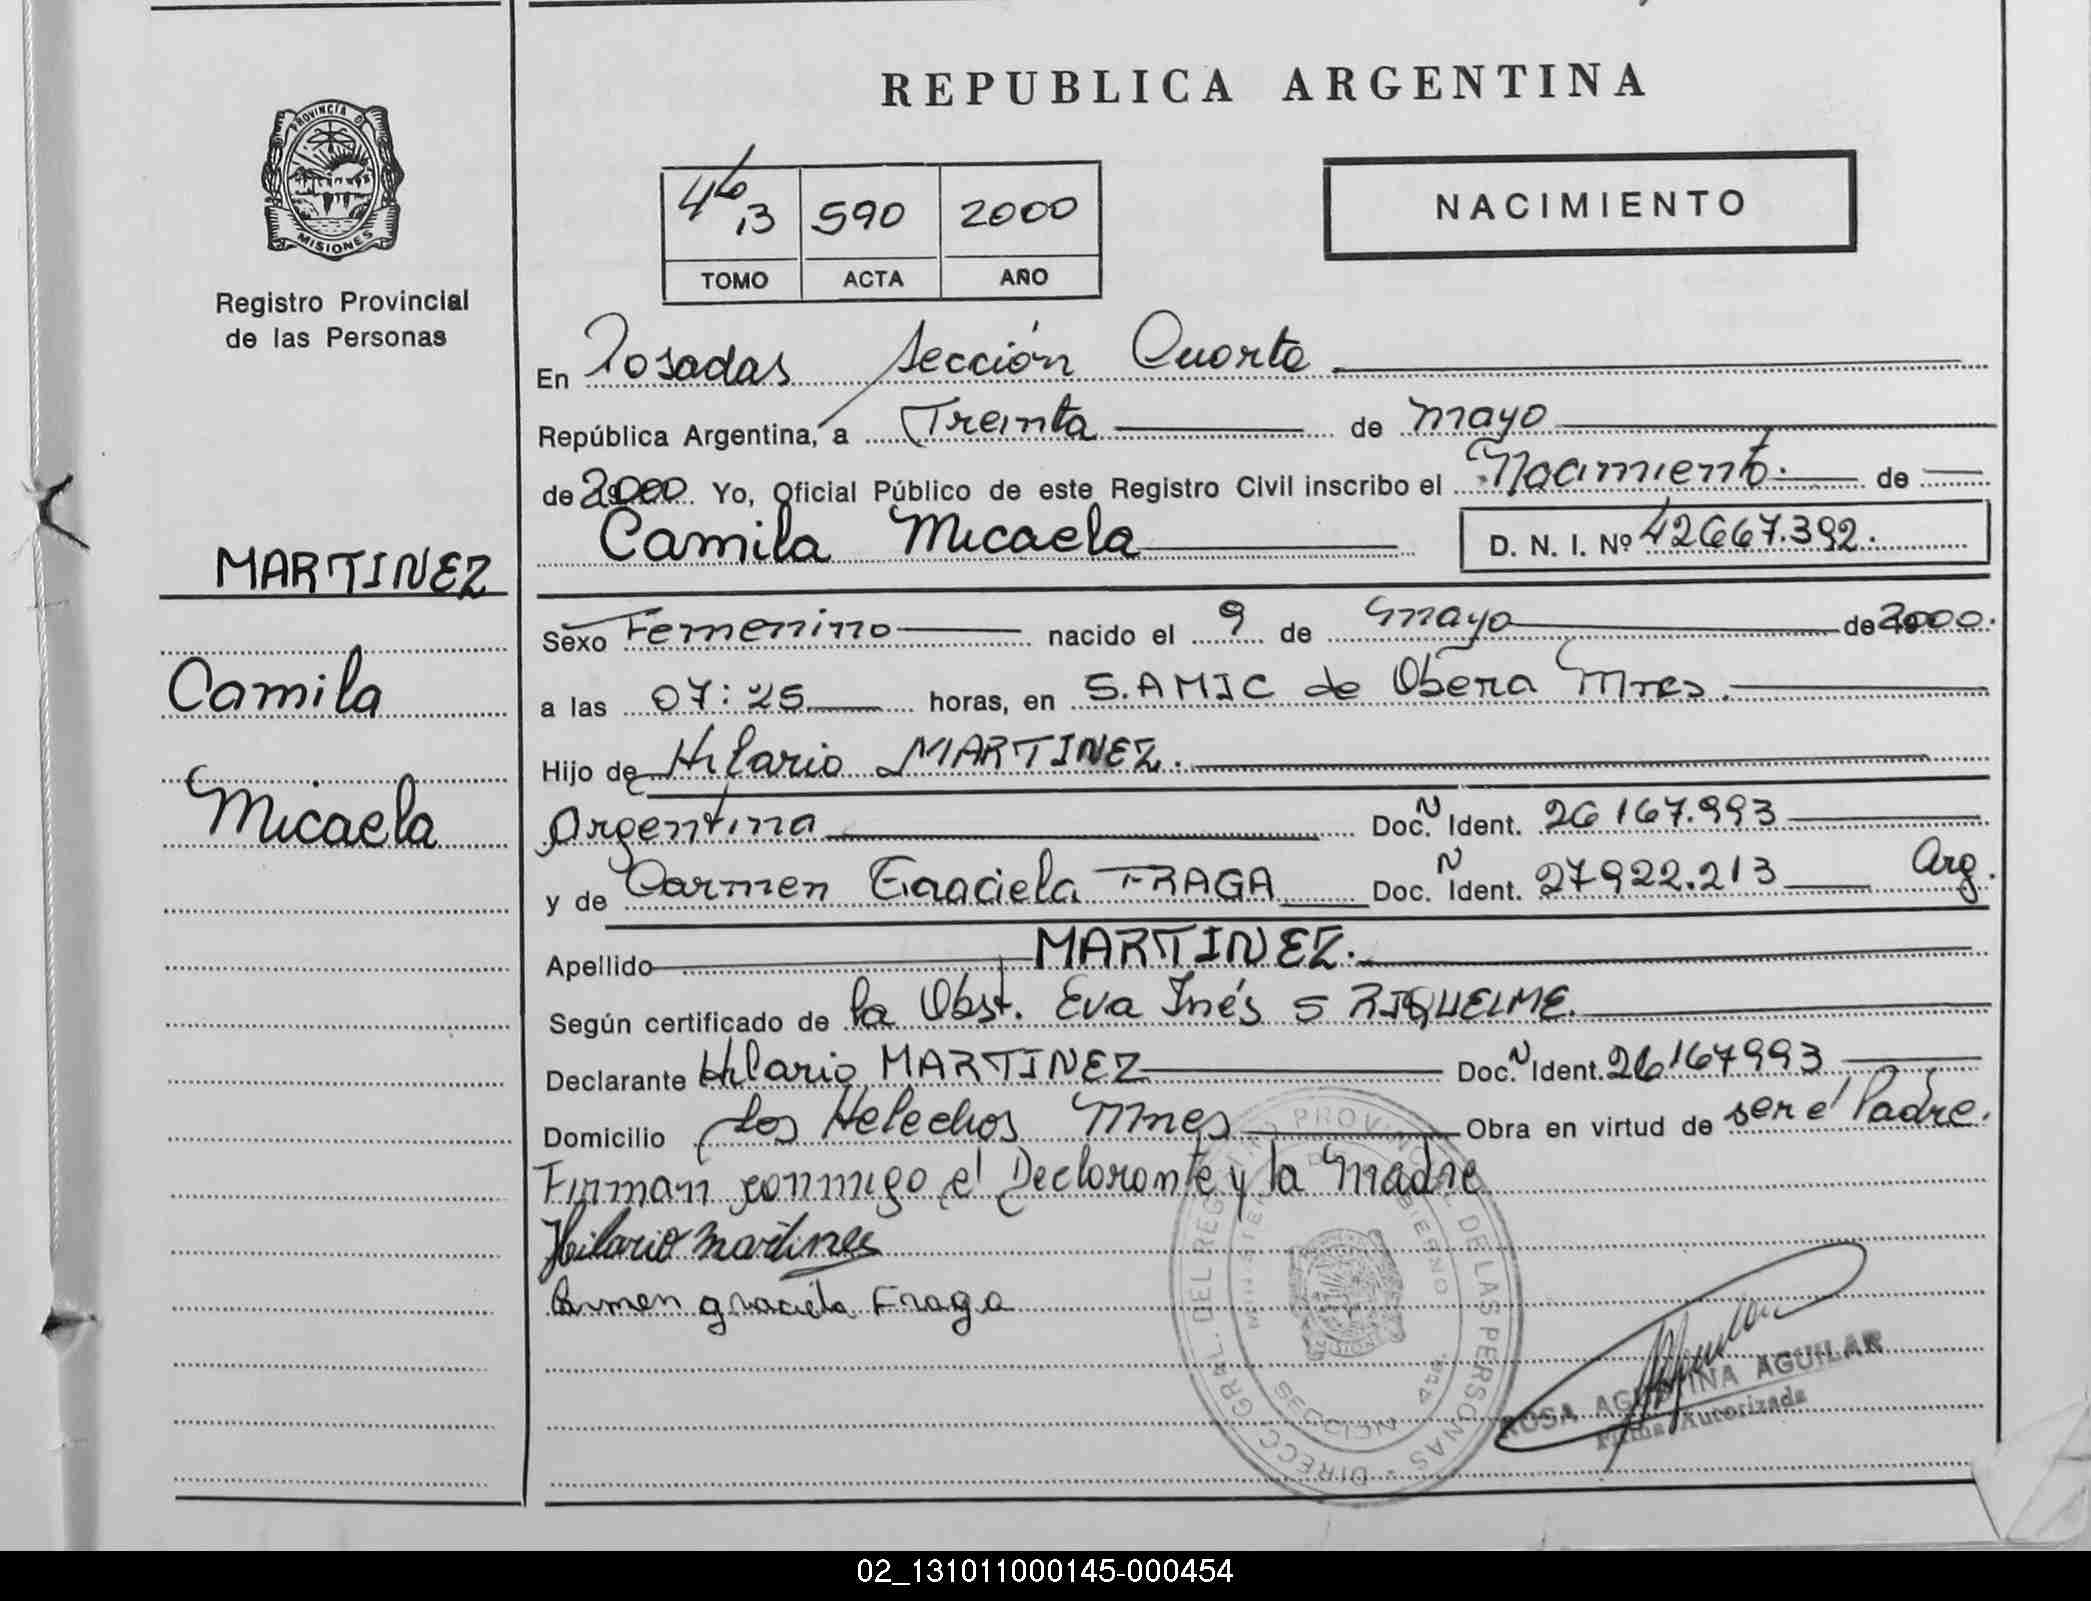 REPUBLICA ARGENTINA
PROVINCIA D
MISIONES
Registro Provincial
de las Personas
4to 13 590 2000
TOMO ACTA AÑO
NACIMIENTO
En Posadas Sección Cuarta
República Argentina, a Treinta de mayo
de 2000 Yo, Oficial Público de este Registro Civil inscribo el Nacimiento. de
Camila Micaela D. N. I. Nº 42667.392.
MARTINEZ
Camila
Micaela
Sexo Femenino nacido el 9 de mayo de 2000.
a las 07:25 horas, en S.AMIC de Obera Mnes.
Hijo de Hilario MARTINEZ.
Argentina Doc. N Ident. 26167.993
y de Carmen Graciela FRAGA Doc. N Ident. 27922.213 Arg.
Apellido MARTINEZ.
Según certificado de la Obst. Eva Inés S RIQUELME.
Declarante Hilario MARTINEZ Doc. N Ident. 26167993
Domicilio Los Helechos Mnes Obra en virtud de ser el Padre.
Firman conmigo el Declarante y la Madre
Hilario Martines
Carmen graciela Fraga
DIRECC. GRAL. DEL REGISTRO PROVINCIAL DE LAS PERSONAS
MINISTERIO DE GOBIERNO
SECCION 4ta.
ROSA AGUSTINA AGUILAR
Firma Autorizada
02_131011000145-000454